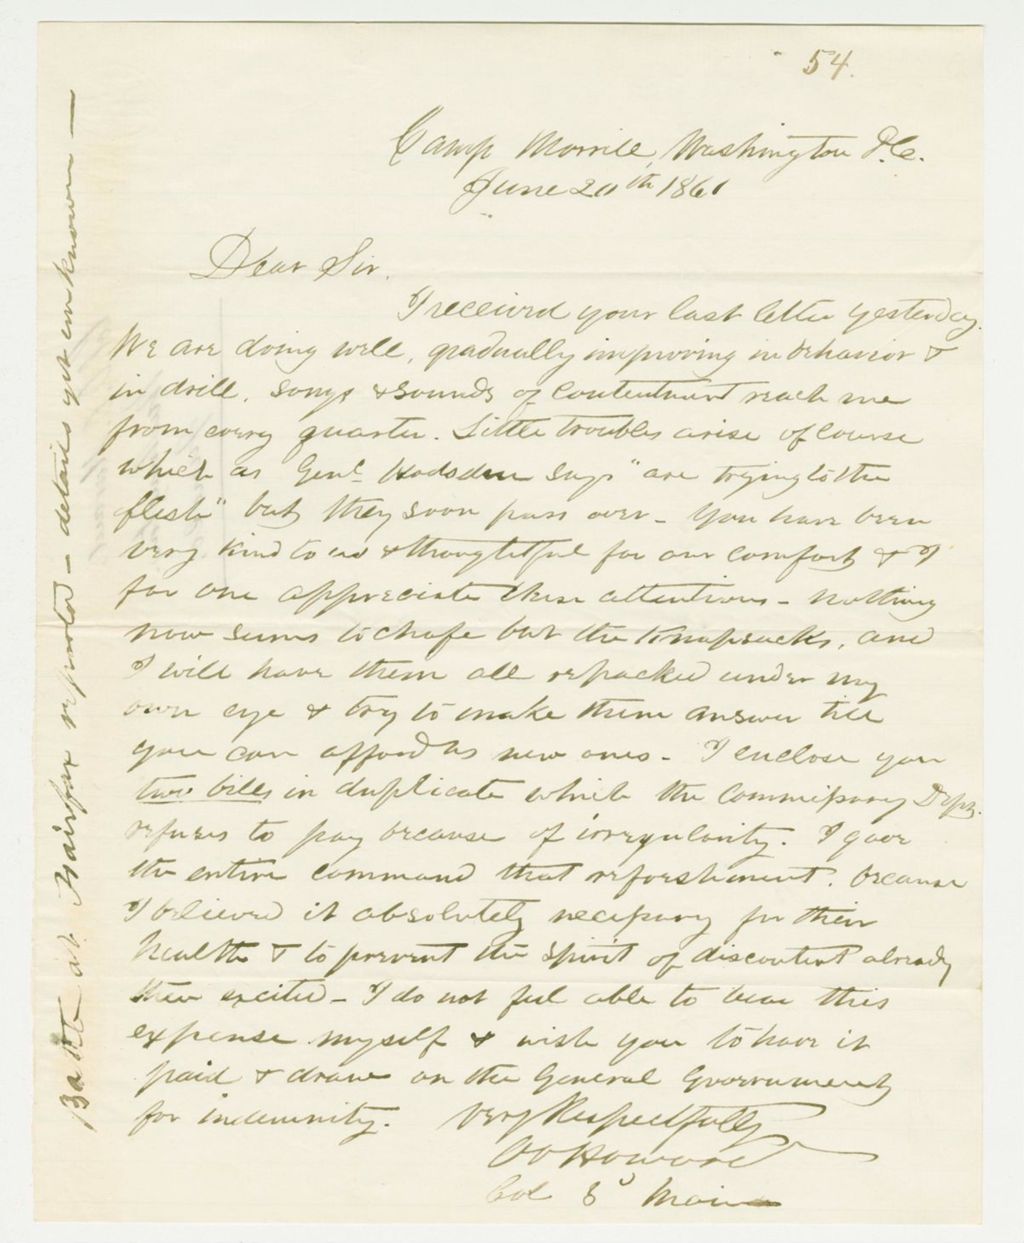 54.
Camp Morrill, Washington D.C.
June 20th 1861
Dear Sir,
I received your last letter yesterday.
We are doing well, gradually improving in behavior &
in drill, songs & sounds of contentment reach me
from every quarter. Little troubles arise of course
which as Genl. Hodsdon says "are trying to the
flesh" but they soon pass over - You have been
very kind to us & thoughtful for our comfort & I
for one appreciate these attentions - nothing
now seems to chafe but the Knapsacks, and
I will have them all repacked under my
own eye & try to make them answer till
you can afford us new ones - I enclose you
two bills in duplicate which the Commissary Dept.
refuses to pay because of irregularity. I gave
the entire command that refreshment, because
I believed it absolutely necessary for their
health & to prevent the spirit of discontent already
then excited - I do not feel able to bear this
expense myself & wish you to have it
paid & draw on the General Government
for indemnity. Very Respectfully
OO Howard
Col 3d Maine
Battle at Fairfax reported - details yet unknown -